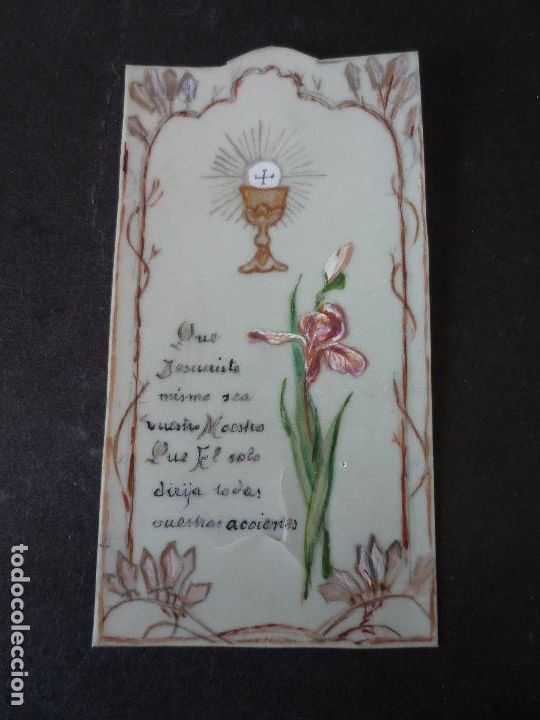 Que
Jesucristo
mismo sea
vuestro Maestro
Que El solo
dirija todas
vuestras acciones
todocoleccion
todocoleccion